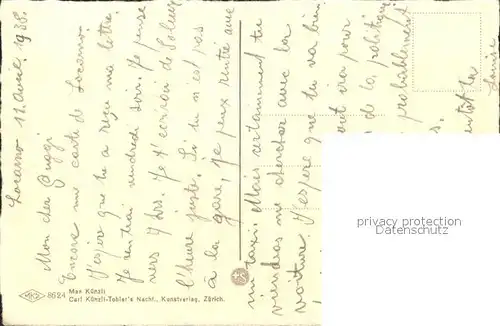 Locarno 11. avril. 1938.
Mon cher Guggi
Encore une carte de Locarno
J'espère que tu a reçu ma lettre.
Je rentrai vendredi soir. Je pense
vers 7 hrs. Je t'écrirai de
l'heure juste. Si tu n'est pas
à la gare, je peux rentrée avec
un taxi. Mais certainement tu
viendras me chercher avec la
voiture. J'espère que tu va bien
pour
de la politique
probablement
la
8624 Max Künzli
Carl Künzli-Tobler's Nachf., Kunstverlag, Zürich.
privacy protection